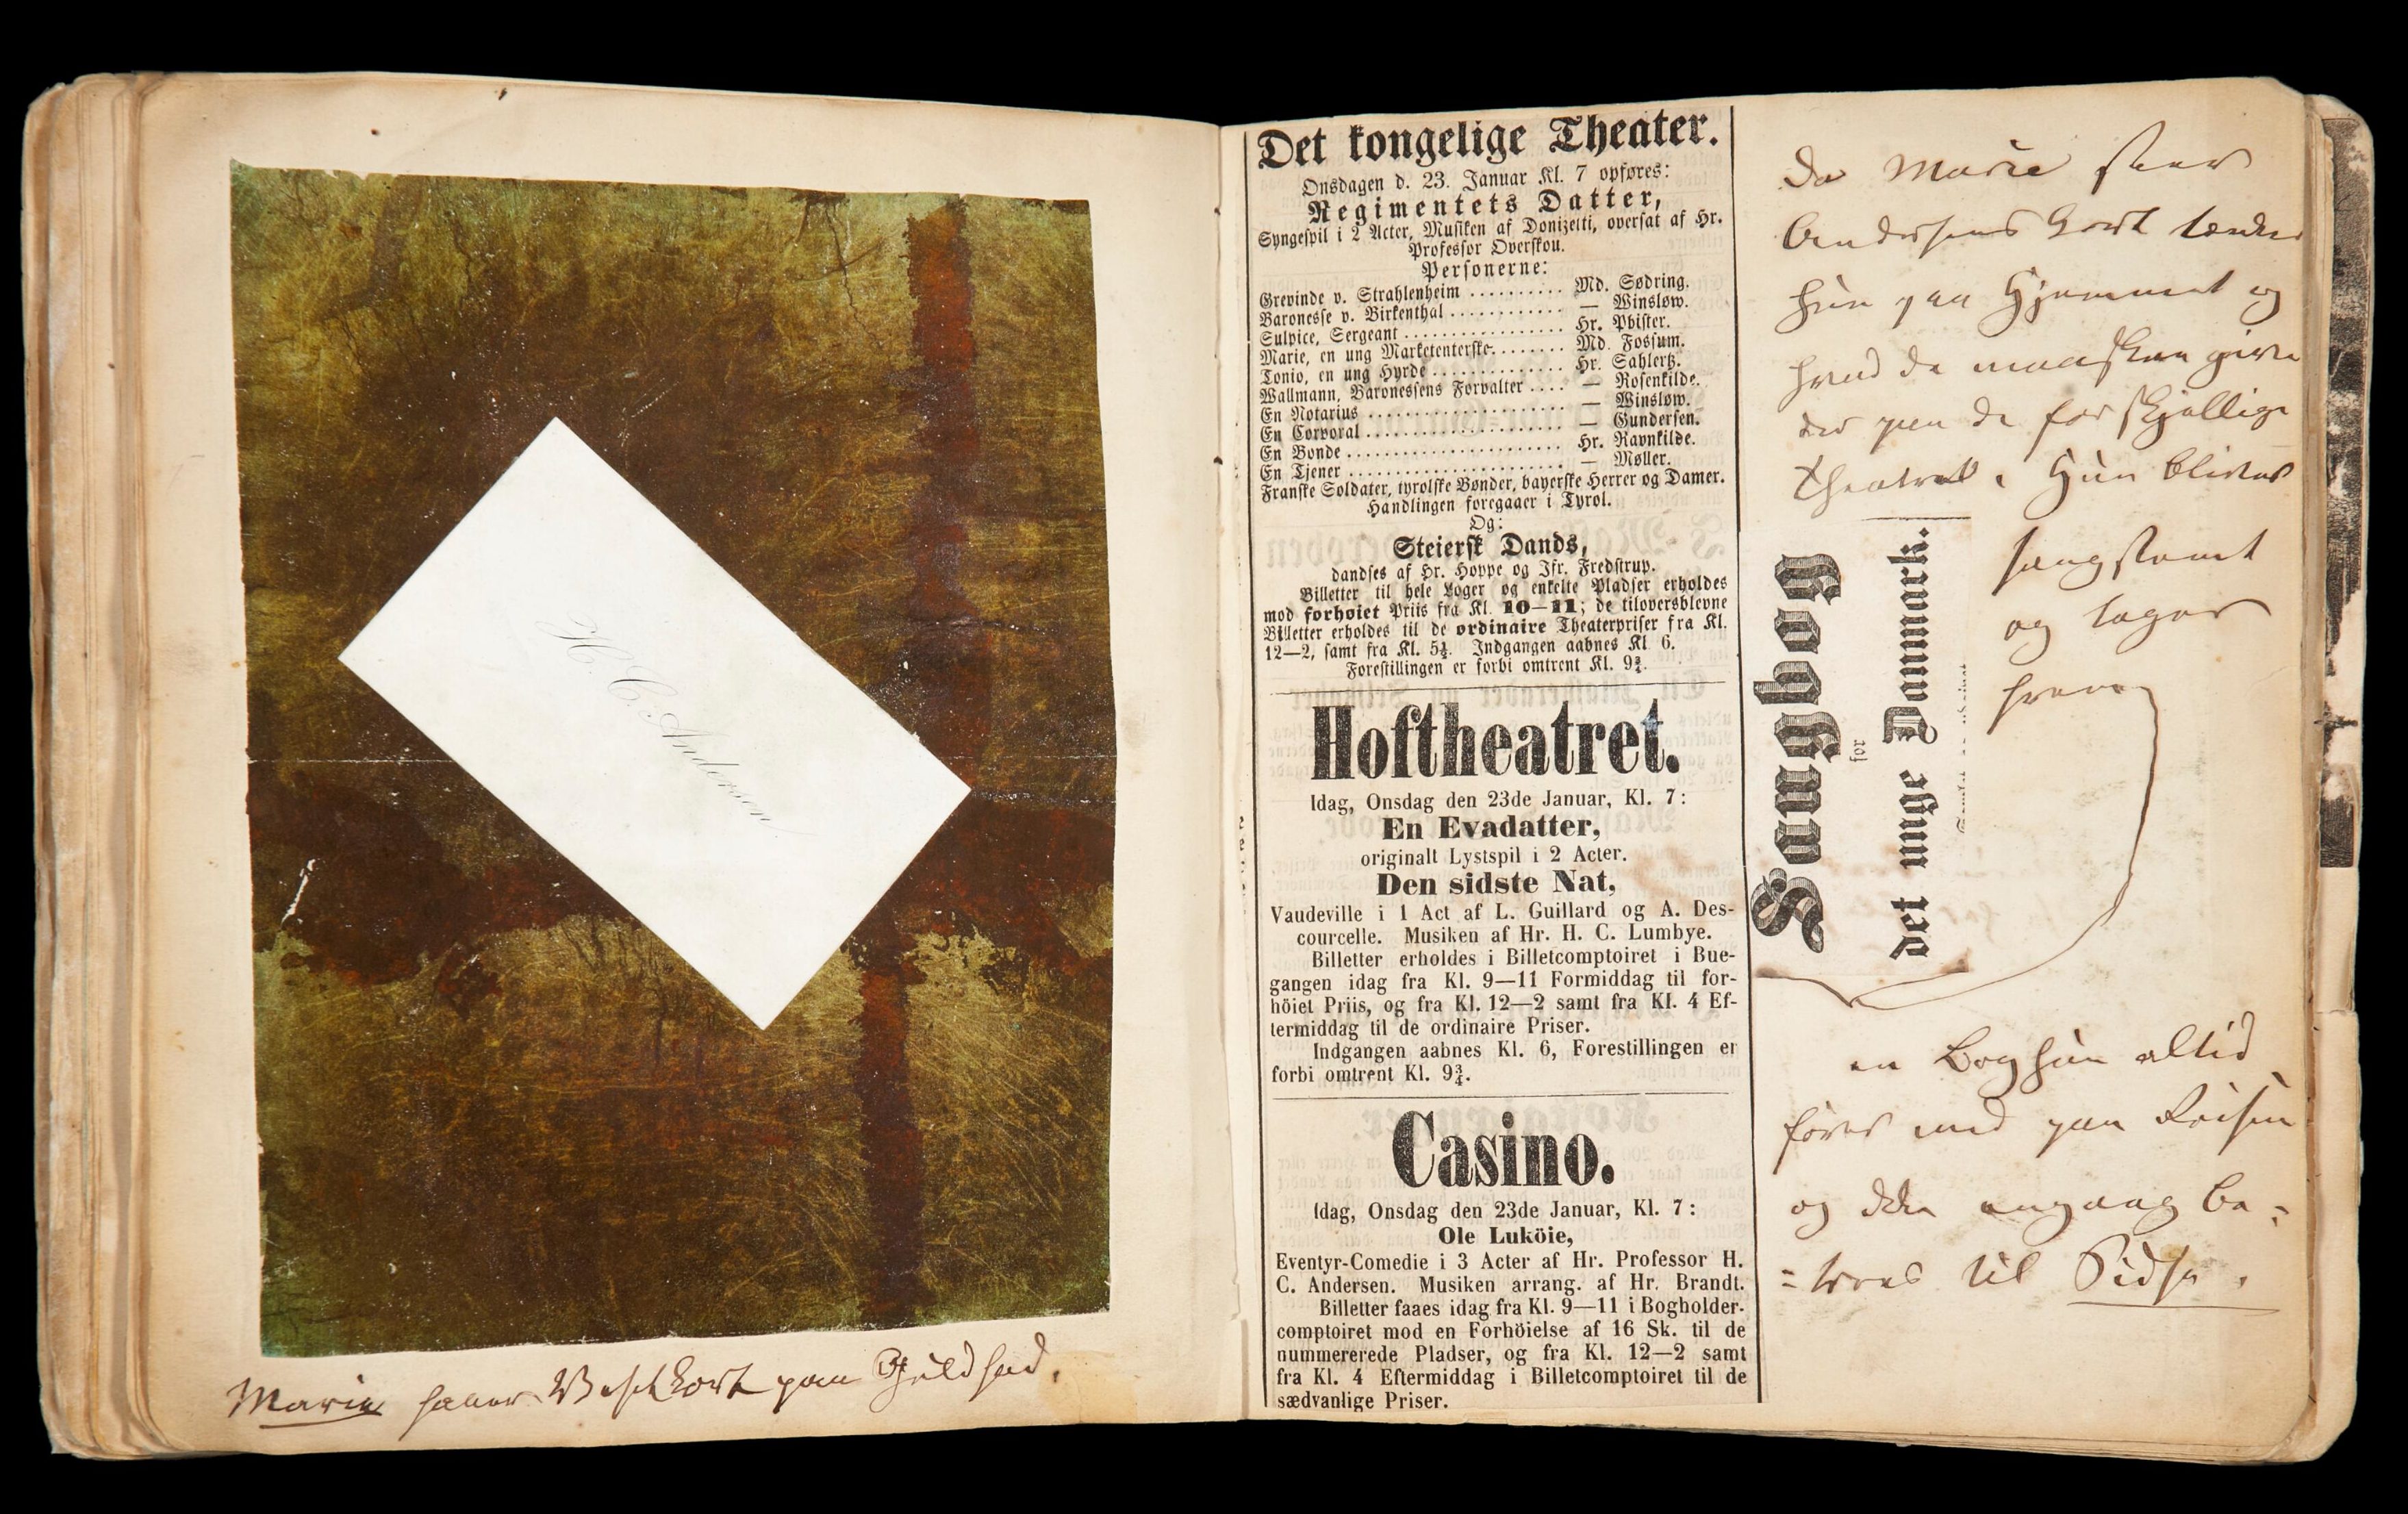 H. C. Andersen
Marie faaer Visitkort paa Guldfad.
Det kongelige Theater.
Onsdagen d. 23. Januar Kl. 7 opføres:
Regimentets Datter,
Syngespil i 2 Acter, Musiken af Donizetti, oversat af Hr.
Professor Overskou.
Personerne:
Grevinde v. Strahlenheim .......... Md. Sødring.
Baronesse v. Birkenthal ............ — Winsløw.
Sulpice, Sergeant ................ Hr. Phister.
Marie, en ung Marketenterske........ Md. Fossum.
Tonio, en ung Hyrde ............... Hr. Sahlertz.
Wallmann, Baronessens Forvalter .... — Rosenkilde.
En Notarius ...................... — Winsløw.
En Corporal ...................... — Gundersen.
En Bonde ........................ Hr. Ravnkilde.
En Tjener ........................ — Møller.
Franske Soldater, tyrolske Bønder, bayerske Herrer og Damer.
Handlingen foregaaer i Tyrol.
Og:
Steiersk Dands,
dandses af Hr. Hoppe og Jfr. Fredstrup.
Billetter til hele Loger og enkelte Pladser erholdes
mod forhøiet Priis fra Kl. 10—11; de tiloversblevne
Billetter erholdes til de ordinaire Theaterpriser fra Kl.
12—2, samt fra Kl. 5½. Indgangen aabnes Kl 6.
Forestillingen er forbi omtrent Kl. 9¾.
Hoftheatret.
Idag, Onsdag den 23de Januar, Kl. 7:
En Evadatter,
originalt Lystspil i 2 Acter.
Den sidste Nat,
Vaudeville i 1 Act af L. Guillard og A. Des-
courcelle. Musiken af Hr. H. C. Lumbye.
Billetter erholdes i Billetcomptoiret i Bue-
gangen idag fra Kl. 9—11 Formiddag til for-
höiet Priis, og fra Kl. 12—2 samt fra Kl. 4 Ef-
termiddag til de ordinaire Priser.
Indgangen aabnes Kl. 6, Forestillingen er
forbi omtrent Kl. 9¾.
Casino.
Idag, Onsdag den 23de Januar, Kl. 7:
Ole Luköie,
Eventyr-Comedie i 3 Acter af Hr. Professor H.
C. Andersen. Musiken arrang. af Hr. Brandt.
Billetter faaes idag fra Kl. 9—11 i Bogholder-
comptoiret mod en Forhöielse af 16 Sk. til de
nummererede Pladser, og fra Kl. 12—2 samt
fra Kl. 4 Eftermiddag i Billetcomptoiret til de
sædvanlige Priser.
Da Marie faaer
Andersens Kort tænker
hun paa Hjemmet og
hvad de maaskee give
der paa de forskjellige
Theatre. Hun bliver
sangstemt
og tager
frem
Sangbog
for
det unge Danmark.
en Bog hun altid
fører med paa Reisen
og ikke engang be=
=troer til Sidse.